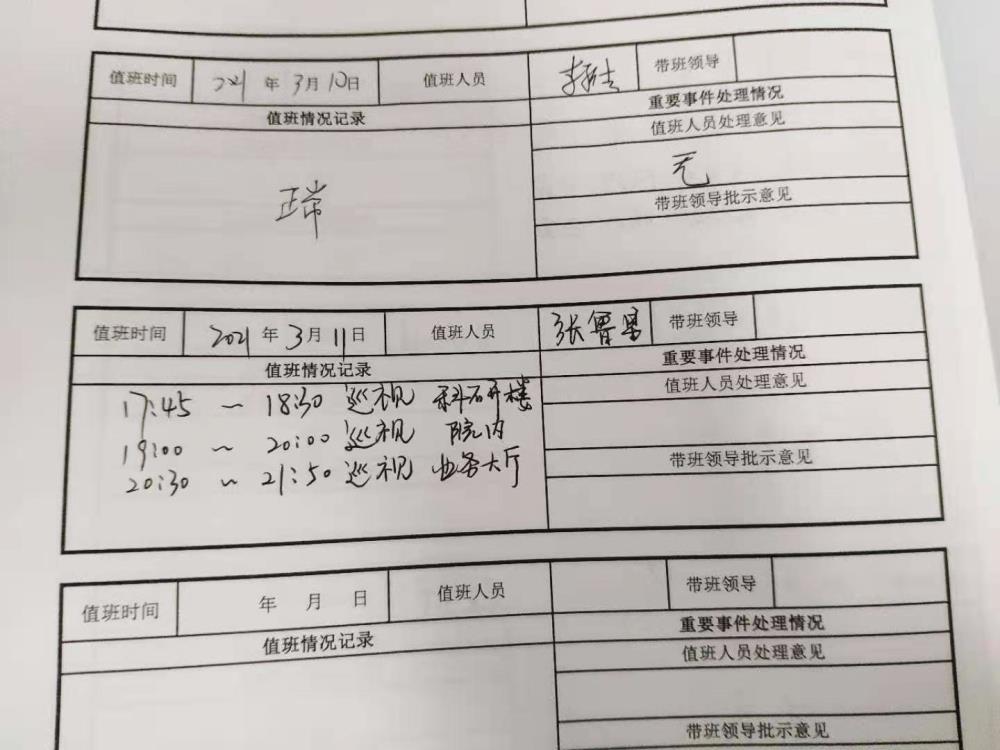 值班时间 2021 年 3月 10日 值班人员 李 带班领导
值班情况记录 重要事件处理情况
值班人员处理意见
正常 无
带班领导批示意见
值班时间 2021 年 3月 11日 值班人员 张晋昌 带班领导
值班情况记录 重要事件处理情况
17:45 ~ 18:30 巡视 科研楼 值班人员处理意见
19:00 ~ 20:00 巡视 院内
20:30 ~ 21:50 巡视 业务大厅 带班领导批示意见
值班时间 年 月 日 值班人员 带班领导
值班情况记录 重要事件处理情况
值班人员处理意见
带班领导批示意见